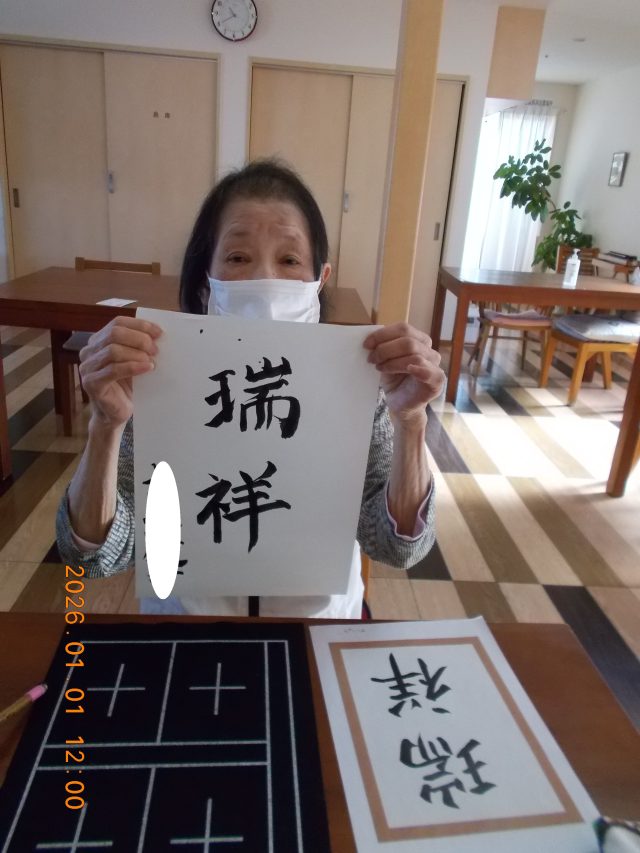 瑞
祥
瑞
祥
2026.01 01 12:00